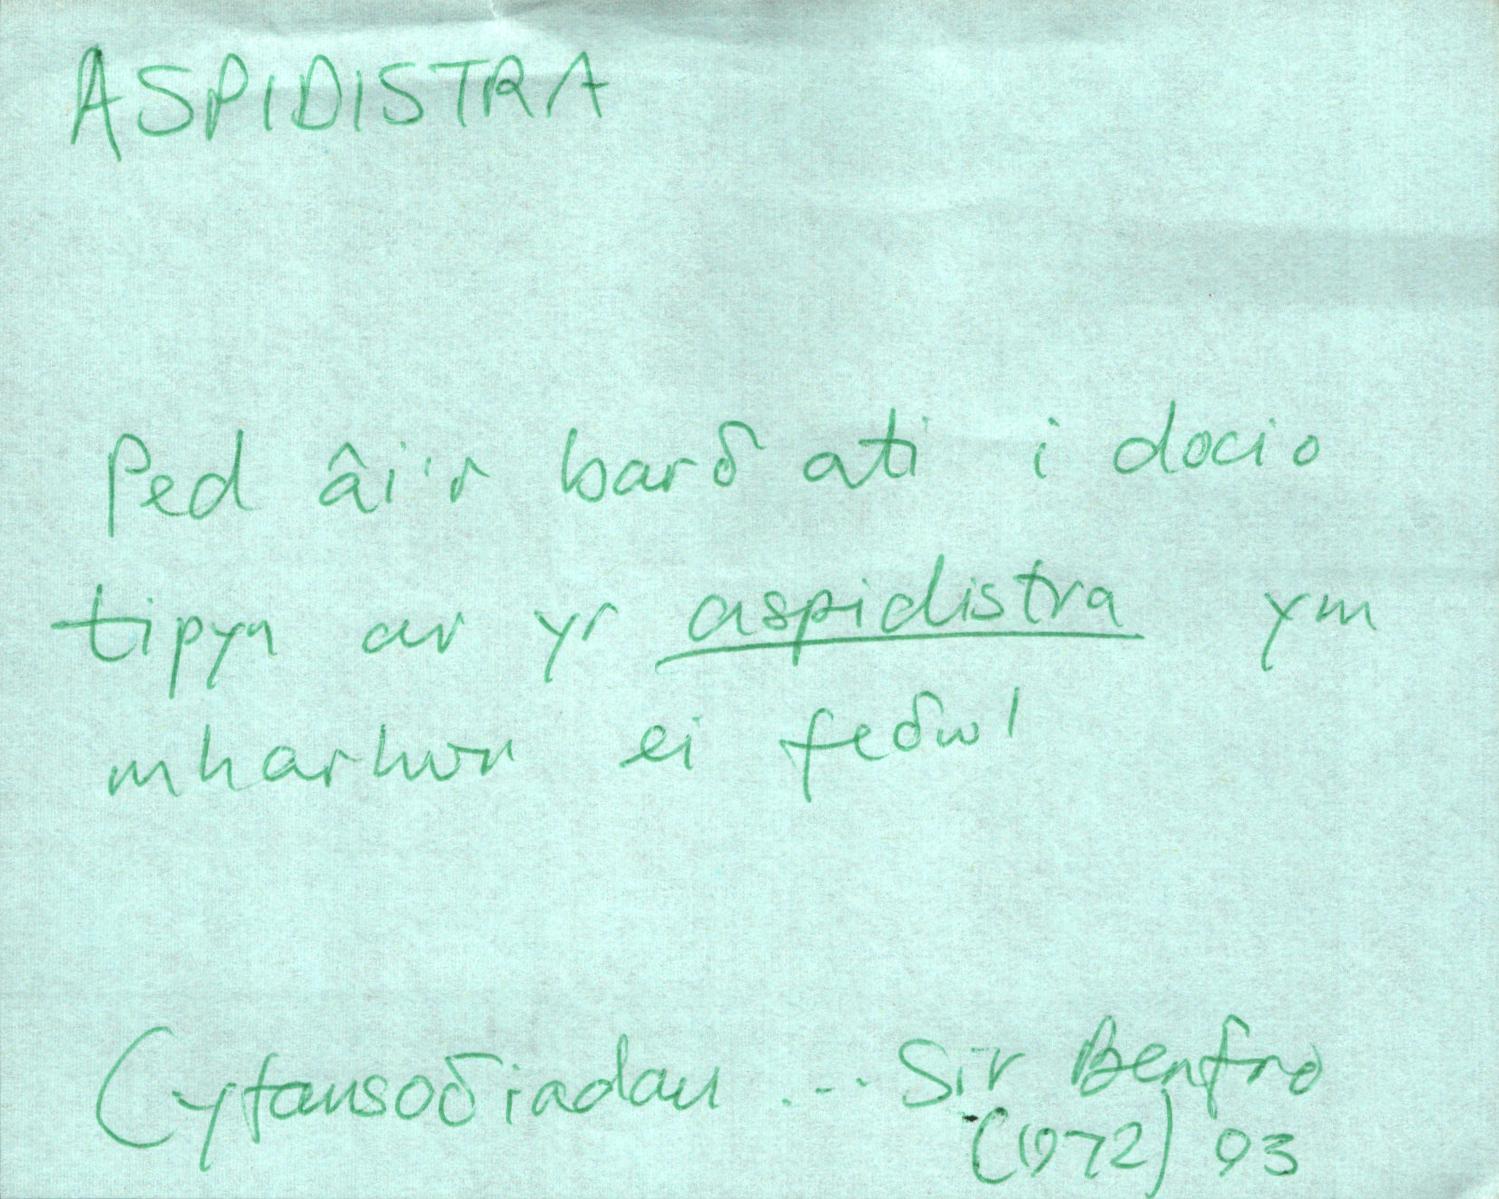 ASPIDISTRA
Ped âi'r barδ ati i docio
tipyn ar yr aspidistra ym
mharlwr ei feδwl
Cyfansoδiadau ... Sir Benfro
(1972) 93